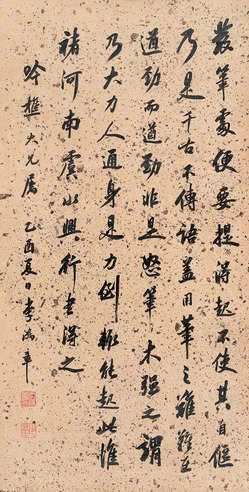 發筆處便要提得起不使其自偃
乃是千古不傳語蓋用筆之難難在
遒勁而遒勁非是怒筆木强之謂
乃大力人通身是力倒輒能起此惟
褚河南虞永興行書得之
吟樵大兄屬 乙酉夏日李鴻章